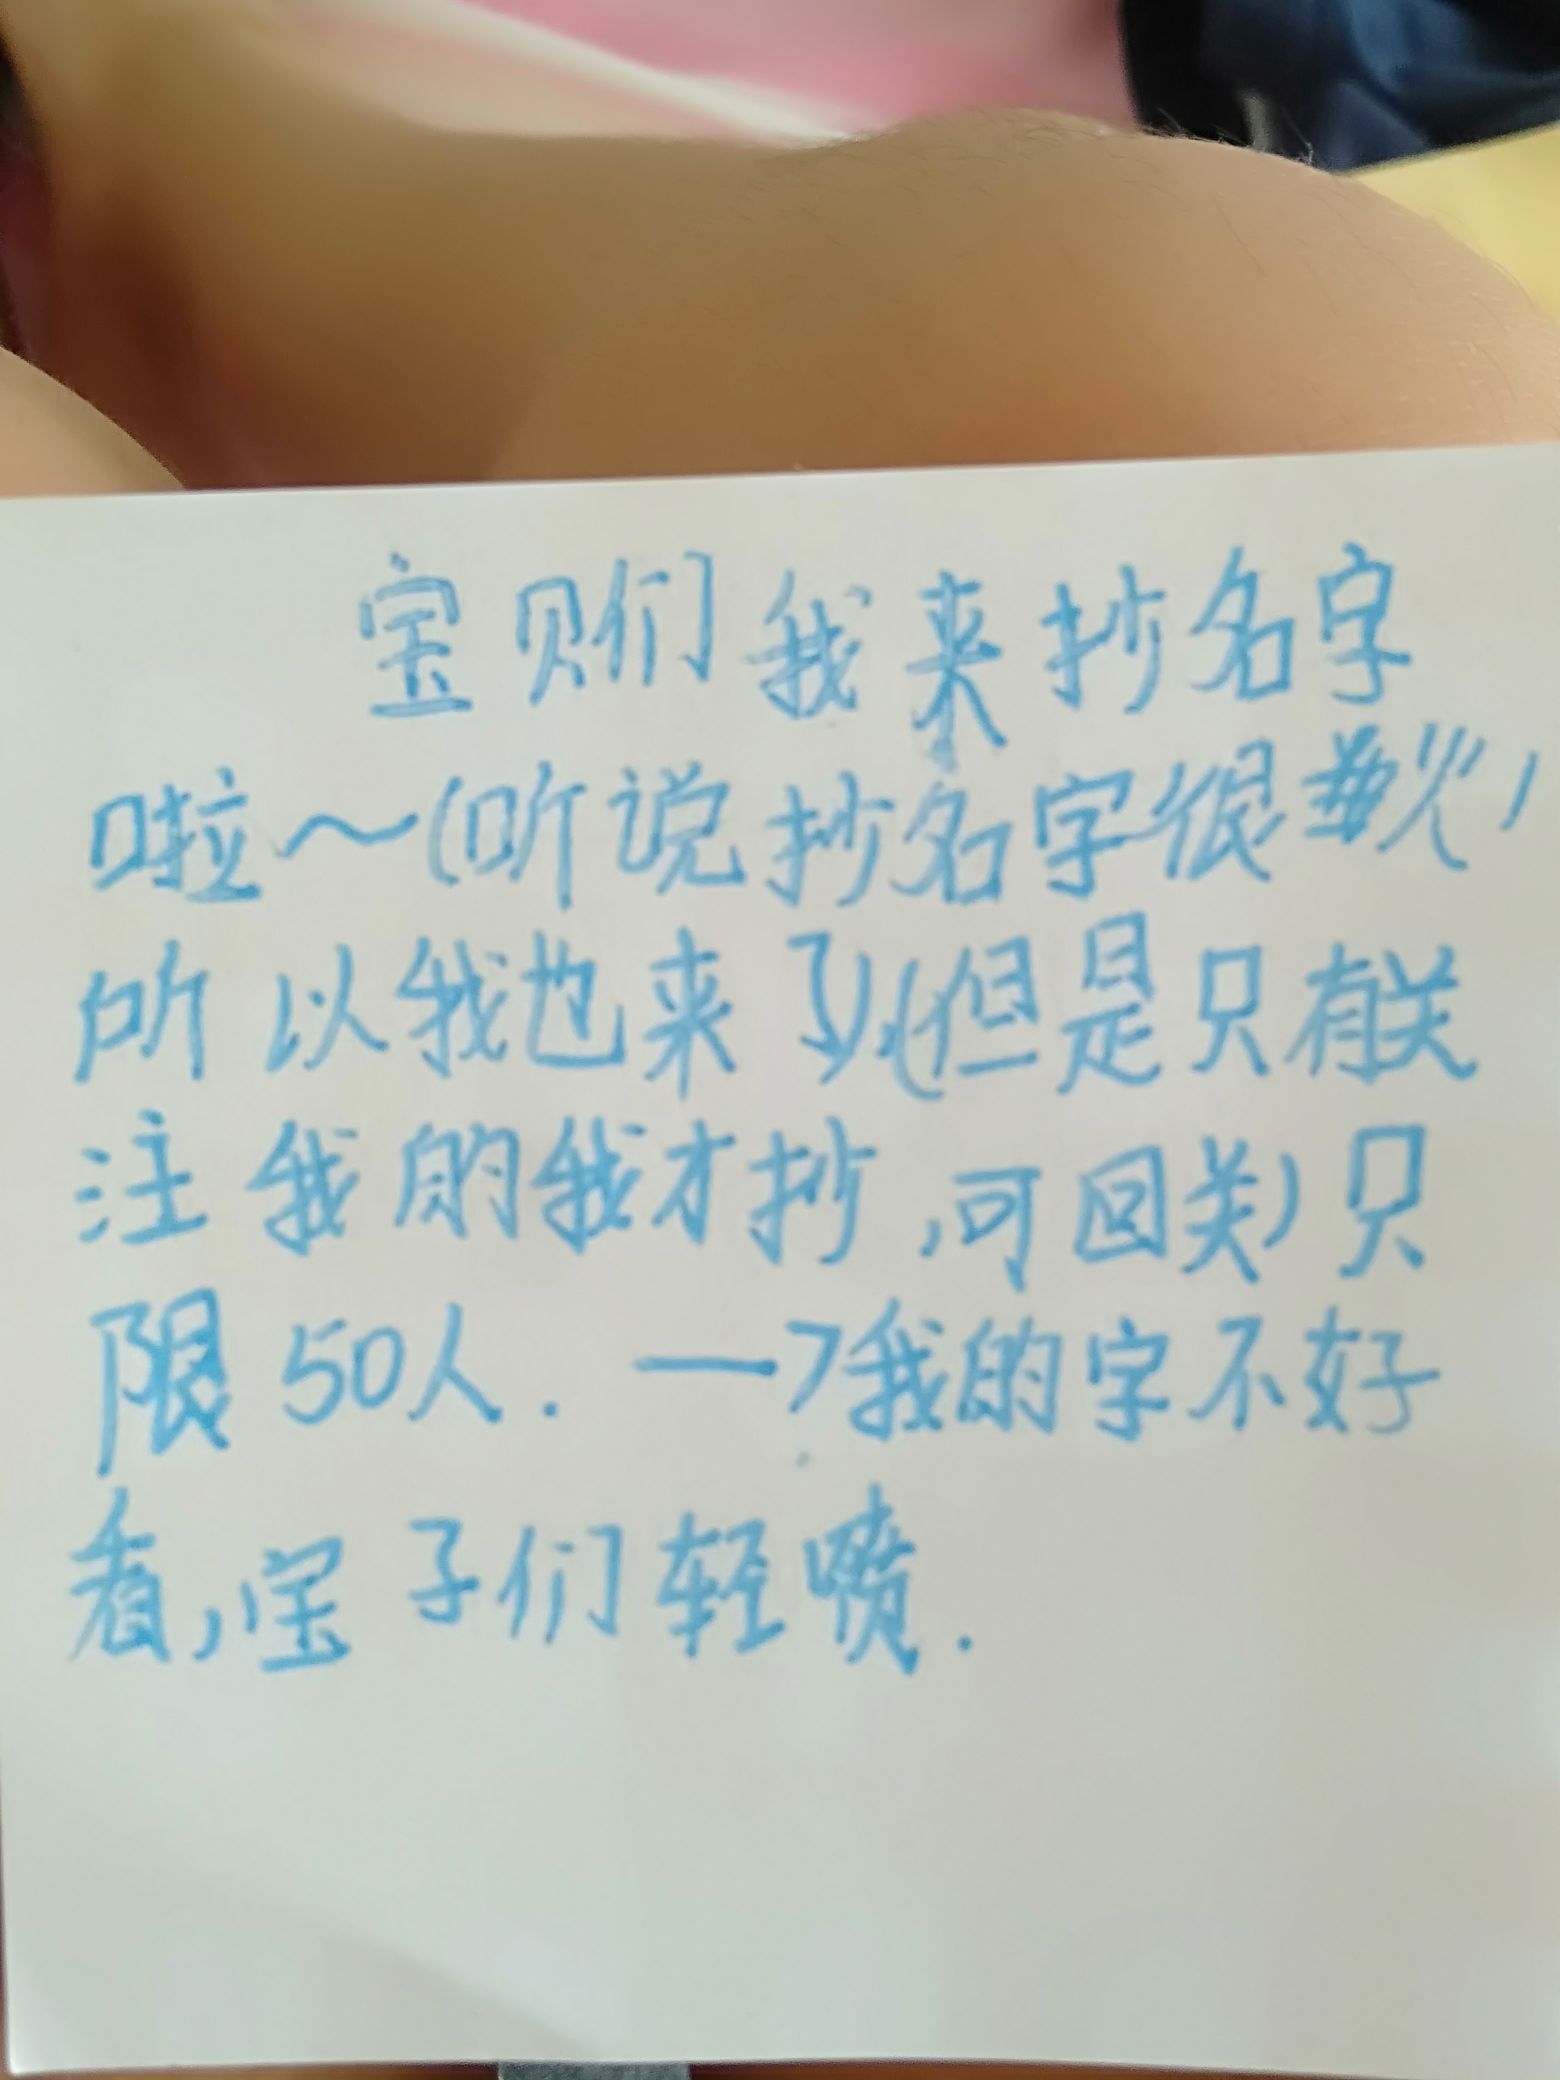 宝贝们我来抄名字
啦～(听说抄名字很火,
所以我也来了)(但是只有关
注我的我才抄,可回关)只
限50人. —>我的字不好
看,宝子们轻喷.